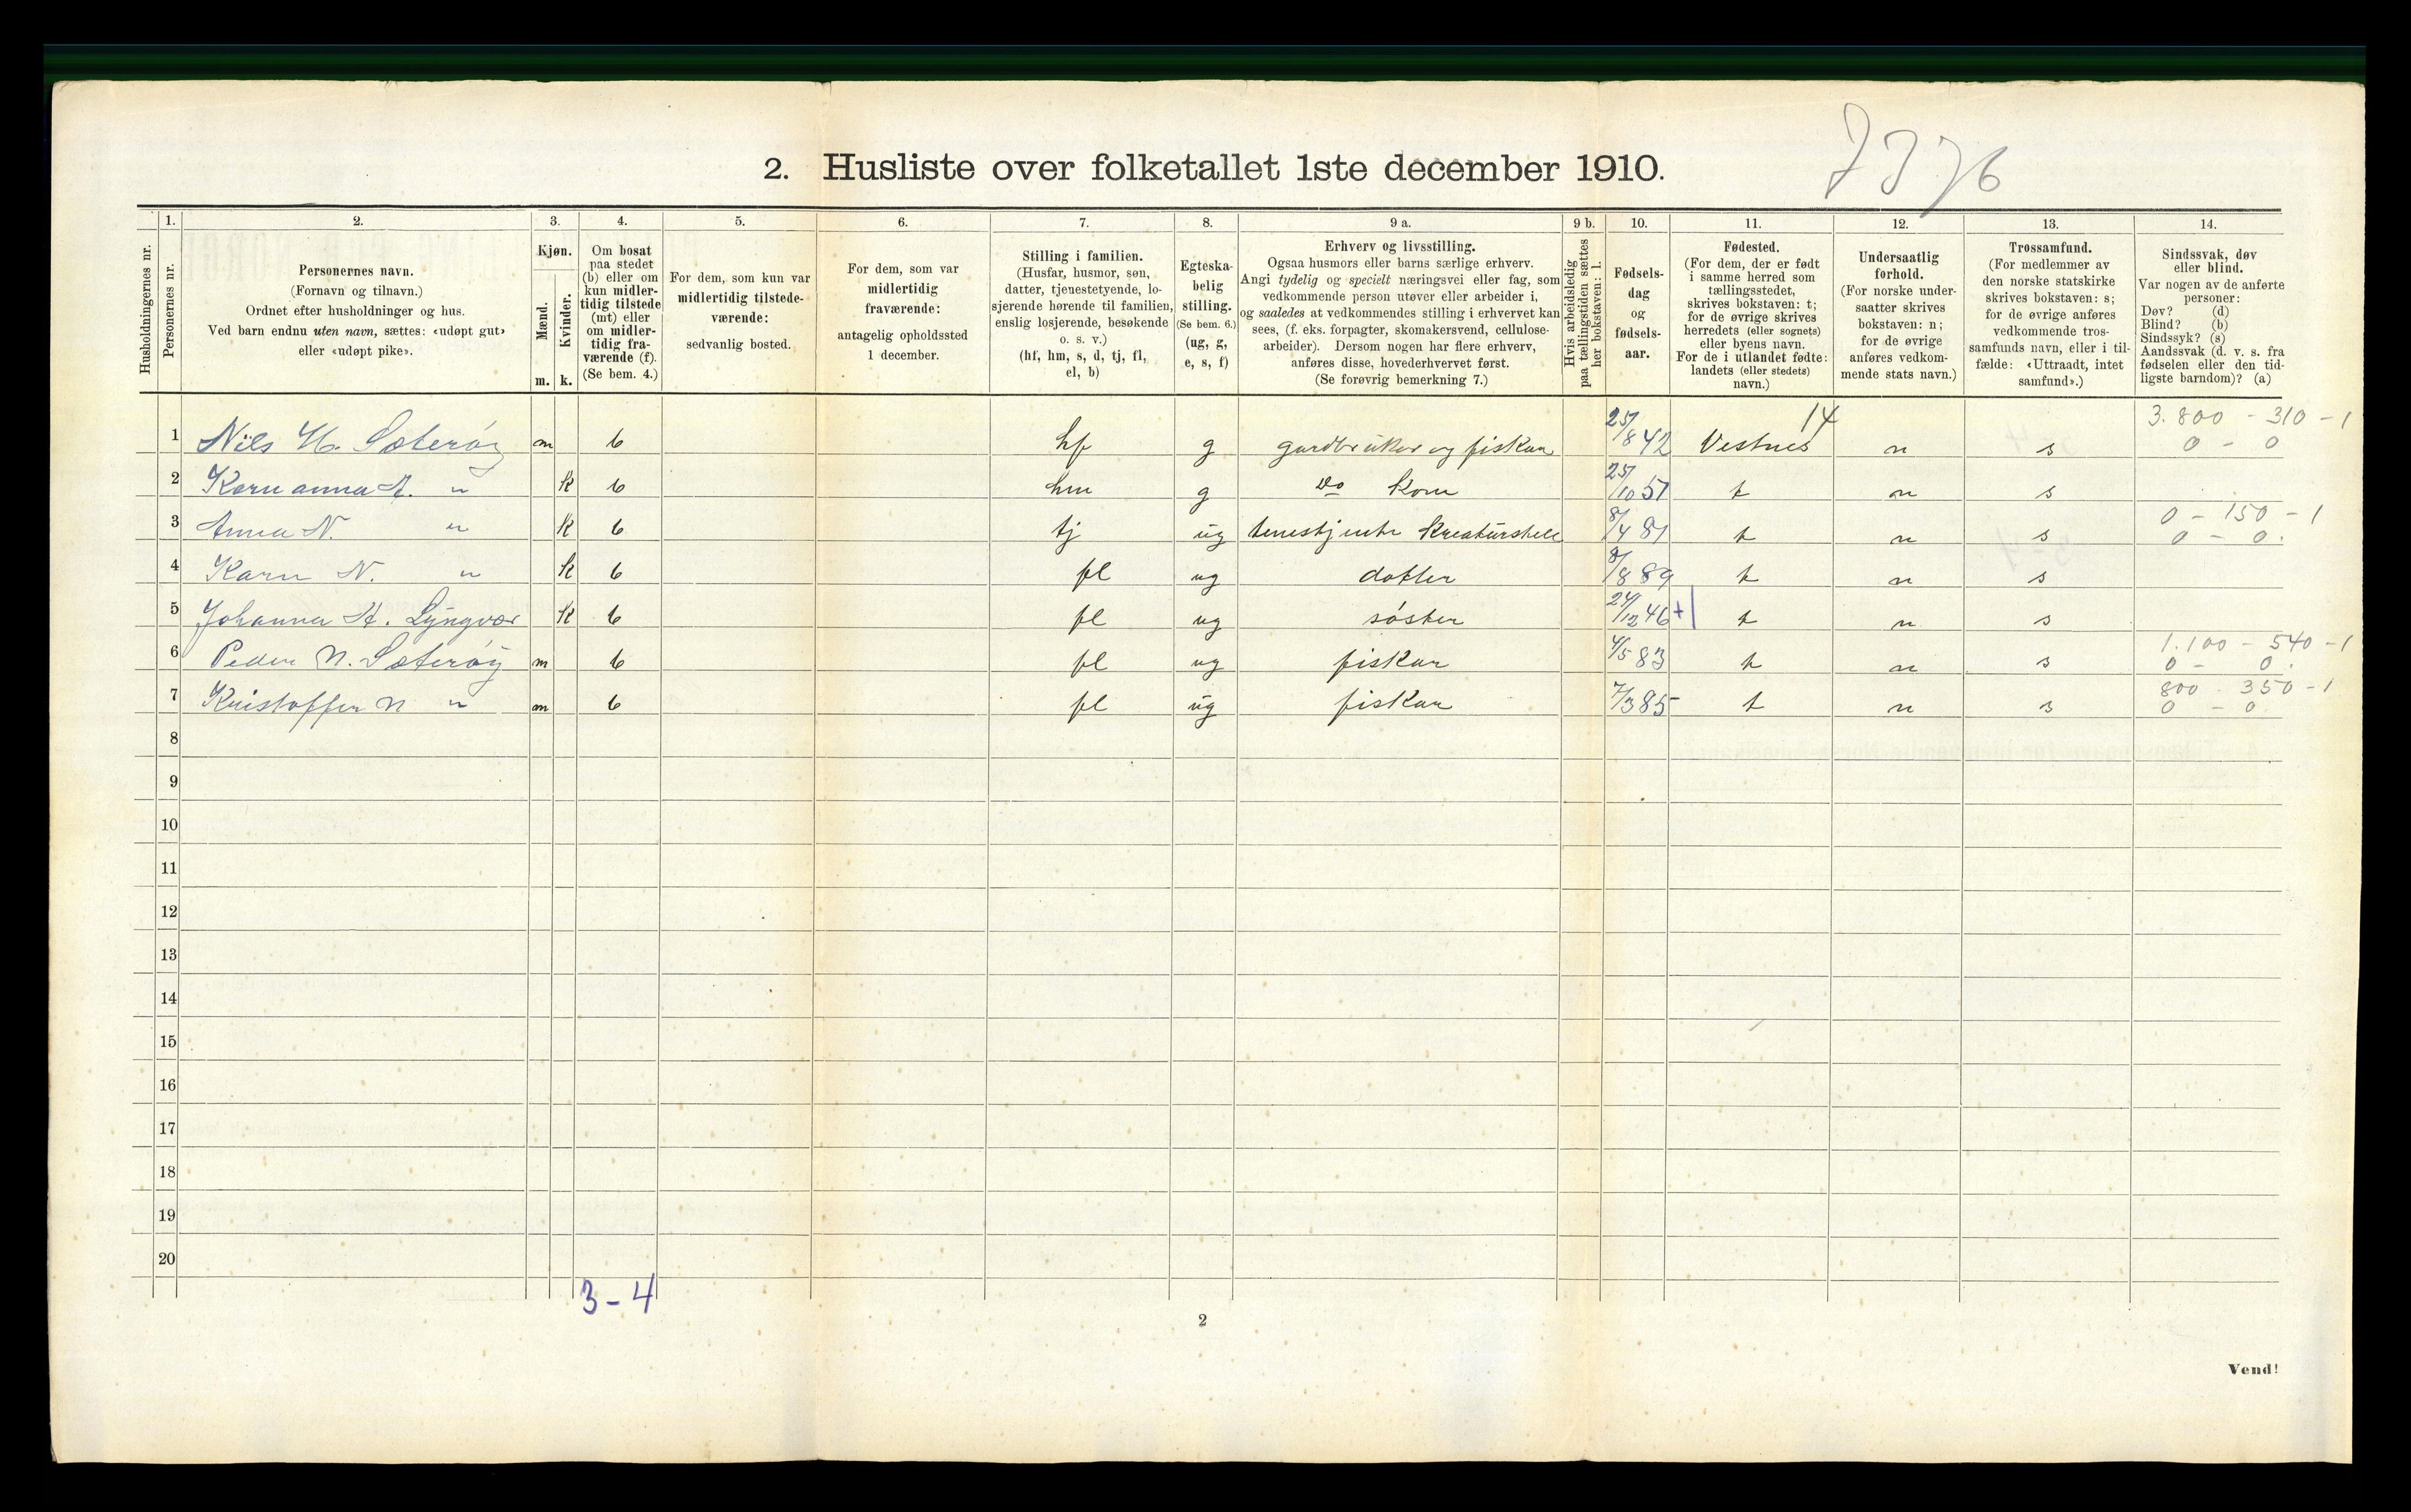 2. Husliste over folketallet 1ste december 1910.
Husholdningernes nr.
1.
Personernes nr.
2.
Personernes navn.
(Fornavn og tilnavn.)
Ordnet efter husholdninger og hus.
Ved barn endnu uten navn, sættes: «udøpt gut»
eller «udøpt pike».
3.
Kjøn.
Mænd.
Kvinder.
m. k.
4.
Om bosat
paa stedet
(b) eller om
kun midler-
tidig tilstede
(mt) eller
om midler-
tidig fra-
værende (f).
(Se bem. 4.)
5.
For dem, som kun var
midlertidig tilstede-
værende:
sedvanlig bosted.
6.
For dem, som var
midlertidig
fraværende:
antagelig opholdssted
1 december.
7.
Stilling i familien.
(Husfar, husmor, søn,
datter, tjenestetyende, lo-
sjerende hørende til familien,
enslig losjerende, besøkende
o. s. v.)
(hf, hm, s, d, tj, fl,
el, b)
8.
Egteska-
belig
stilling.
(Se bem. 6.)
(ug, g,
e, s, f)
9 a.
Erhverv og livsstilling.
Ogsaa husmors eller barns særlige erhverv.
Angi tydelig og specielt næringsvei eller fag, som
vedkommende person utøver eller arbeider i,
og saaledes at vedkommendes stilling i erhvervet kan
sees, (f. eks. forpagter, skomakersvend, cellulose-
arbeider). Dersom nogen har flere erhverv,
anføres disse, hovederhvervet først.
(Se forøvrig bemerkning 7.)
9 b.
Hvis arbeidsledig
paa tællingstiden sættes
her bokstaven: l.
10.
Fødsels-
dag
og
fødsels-
aar.
11.
Fødested.
(For dem, der er født
i samme herred som
tællingsstedet,
skrives bokstaven: t;
for de øvrige skrives
herredets (eller sognets)
eller byens navn.
For de i utlandet fødte:
landets (eller stedets)
navn.)
12.
Undersaatlig
forhold.
(For norske under-
saatter skrives
bokstaven: n;
for de øvrige
anføres vedkom-
mende stats navn.)
13.
Trossamfund.
(For medlemmer av
den norske statskirke
skrives bokstaven: s;
for de øvrige anføres
vedkommende tros-
samfunds navn, eller i til-
fælde: «Uttraadt, intet
samfund».)
14.
Sindssvak, døv
eller blind.
Var nogen av de anførte
personer:
Døv? (d)
Blind? (b)
Sindssyk? (s)
Aandssvak (d. v. s. fra
fødselen eller den tid-
ligste barndom)? (a)
14 3.800 - 310 - 1
1 Nils H. Sæterøy m b hf g gardbruker og fiskar 25/8 42 Vestnes n s 0 - 0
2 Karn anna A. " k b hm g do kone 25/10 51 t n s
0 - 150 - 1
3 Anna N. " k b tj ug tenestjente kreaturstell 8/4 81 t n s 0 - 0.
4 Karn N. " k b fl ug dotter 8/8 89 t n s
5 Johanna A. Lyngvær k b fl ug søster 24/12 46 + t n s
1.100 - 540 - 1
6 Peder N. Sæterøy m b fl ug fiskar 4/5 83 t n s 0 - 0.
800 - 350 - 1
7 Kristoffer N " m b fl ug fiskar 7/3 85 t n s 0 - 0
8
9
10
11
12
13
14
15
16
17
18
19
20
3 - 4
2
Vend!